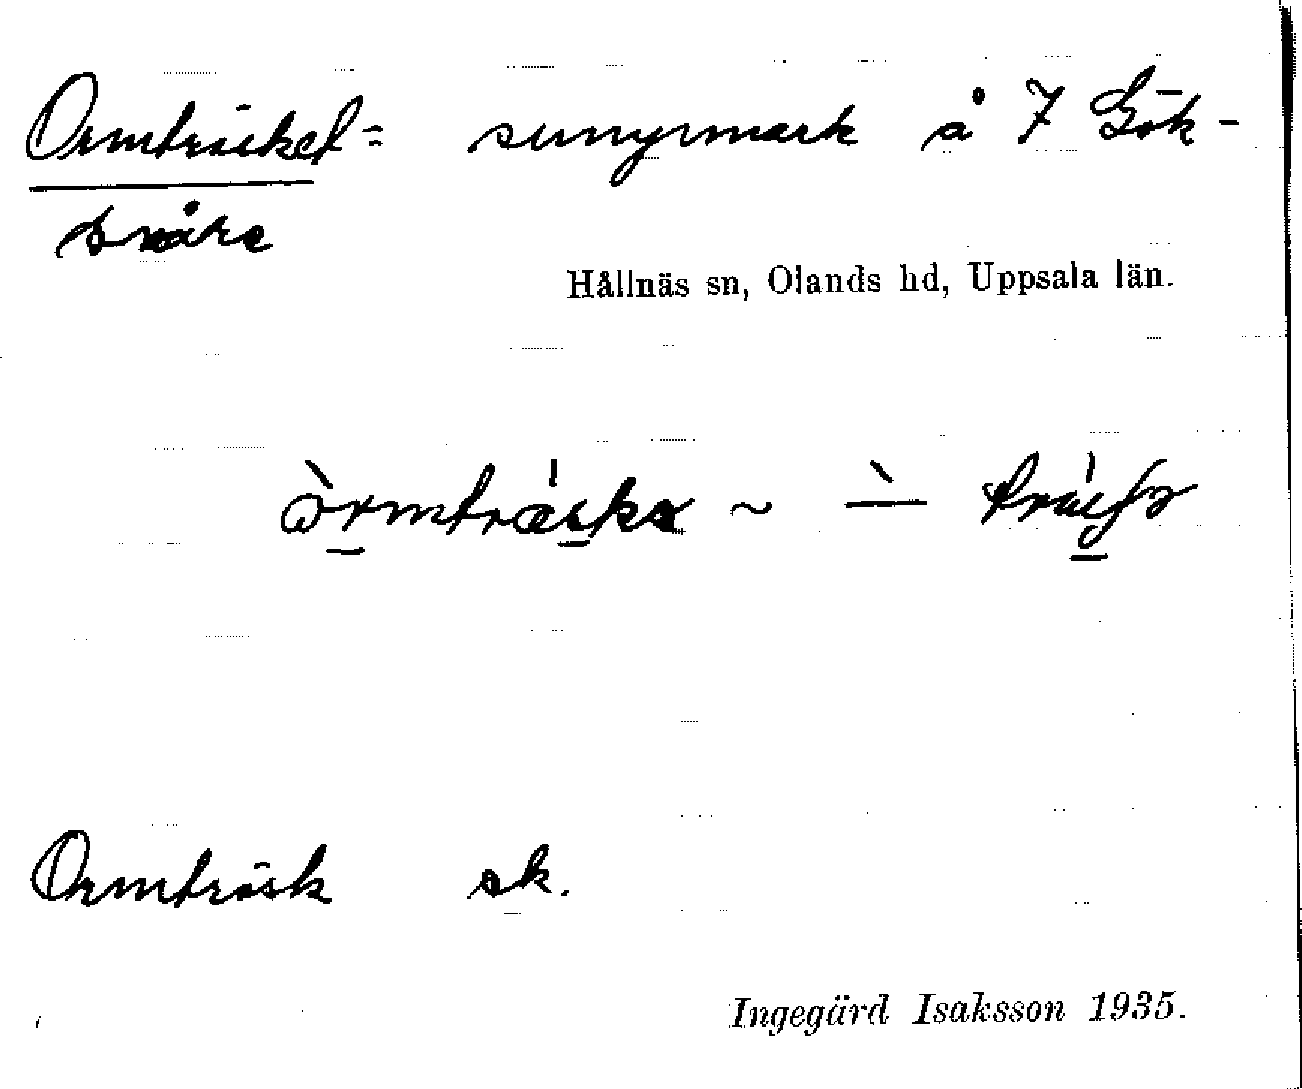 Ormträsket= sumpmark å 7 Gök-
svåre
Hållnäs sn, Olands hd, Uppsala län.
òrmträ́ska ~
Ormträsk sk.
Ingegärd Isaksson 1935.